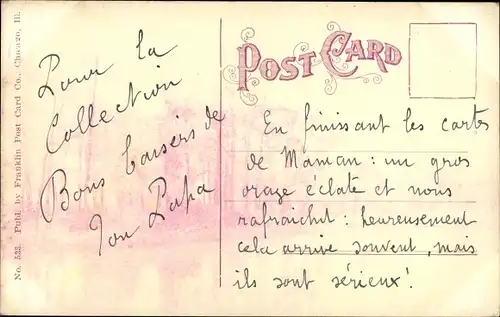 No. 533. Publ. by Franklin Post Card Co., Chicago, Ill.
Pour la
Collection
Bons baisers de
Ton Papa
POST CARD
En finissant les cartes
de Maman : un gros
orage éclate et nous
rafraichit : heureusement
cela arrive souvent, mais
ils sont sérieux !